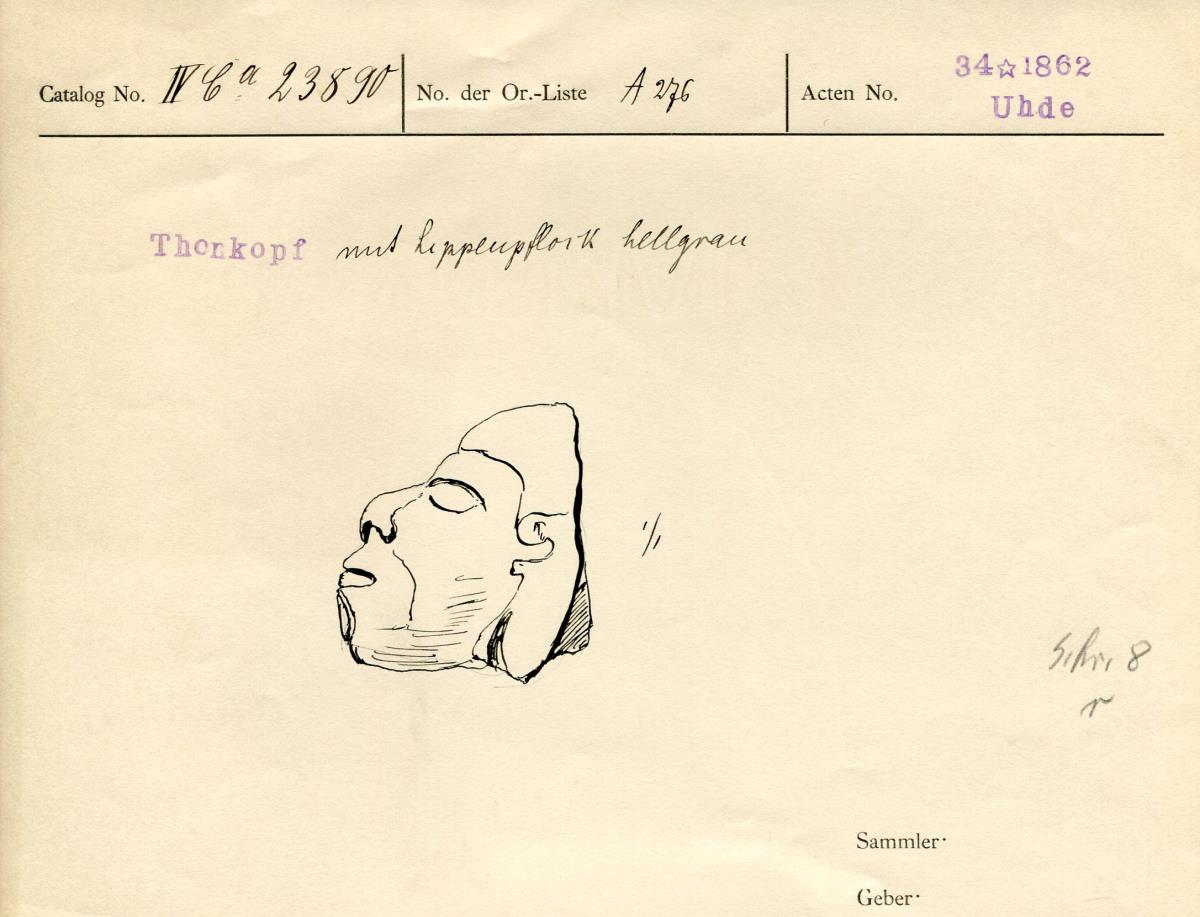 Catalog No. IV Ca 23890 No. der Or.-Liste A 276 Acten No. 34☆1862
Uhde
Thonkopf mit Lippenpflock hellgrau
1/1
Schr. 8
r
Sammler·
Geber·